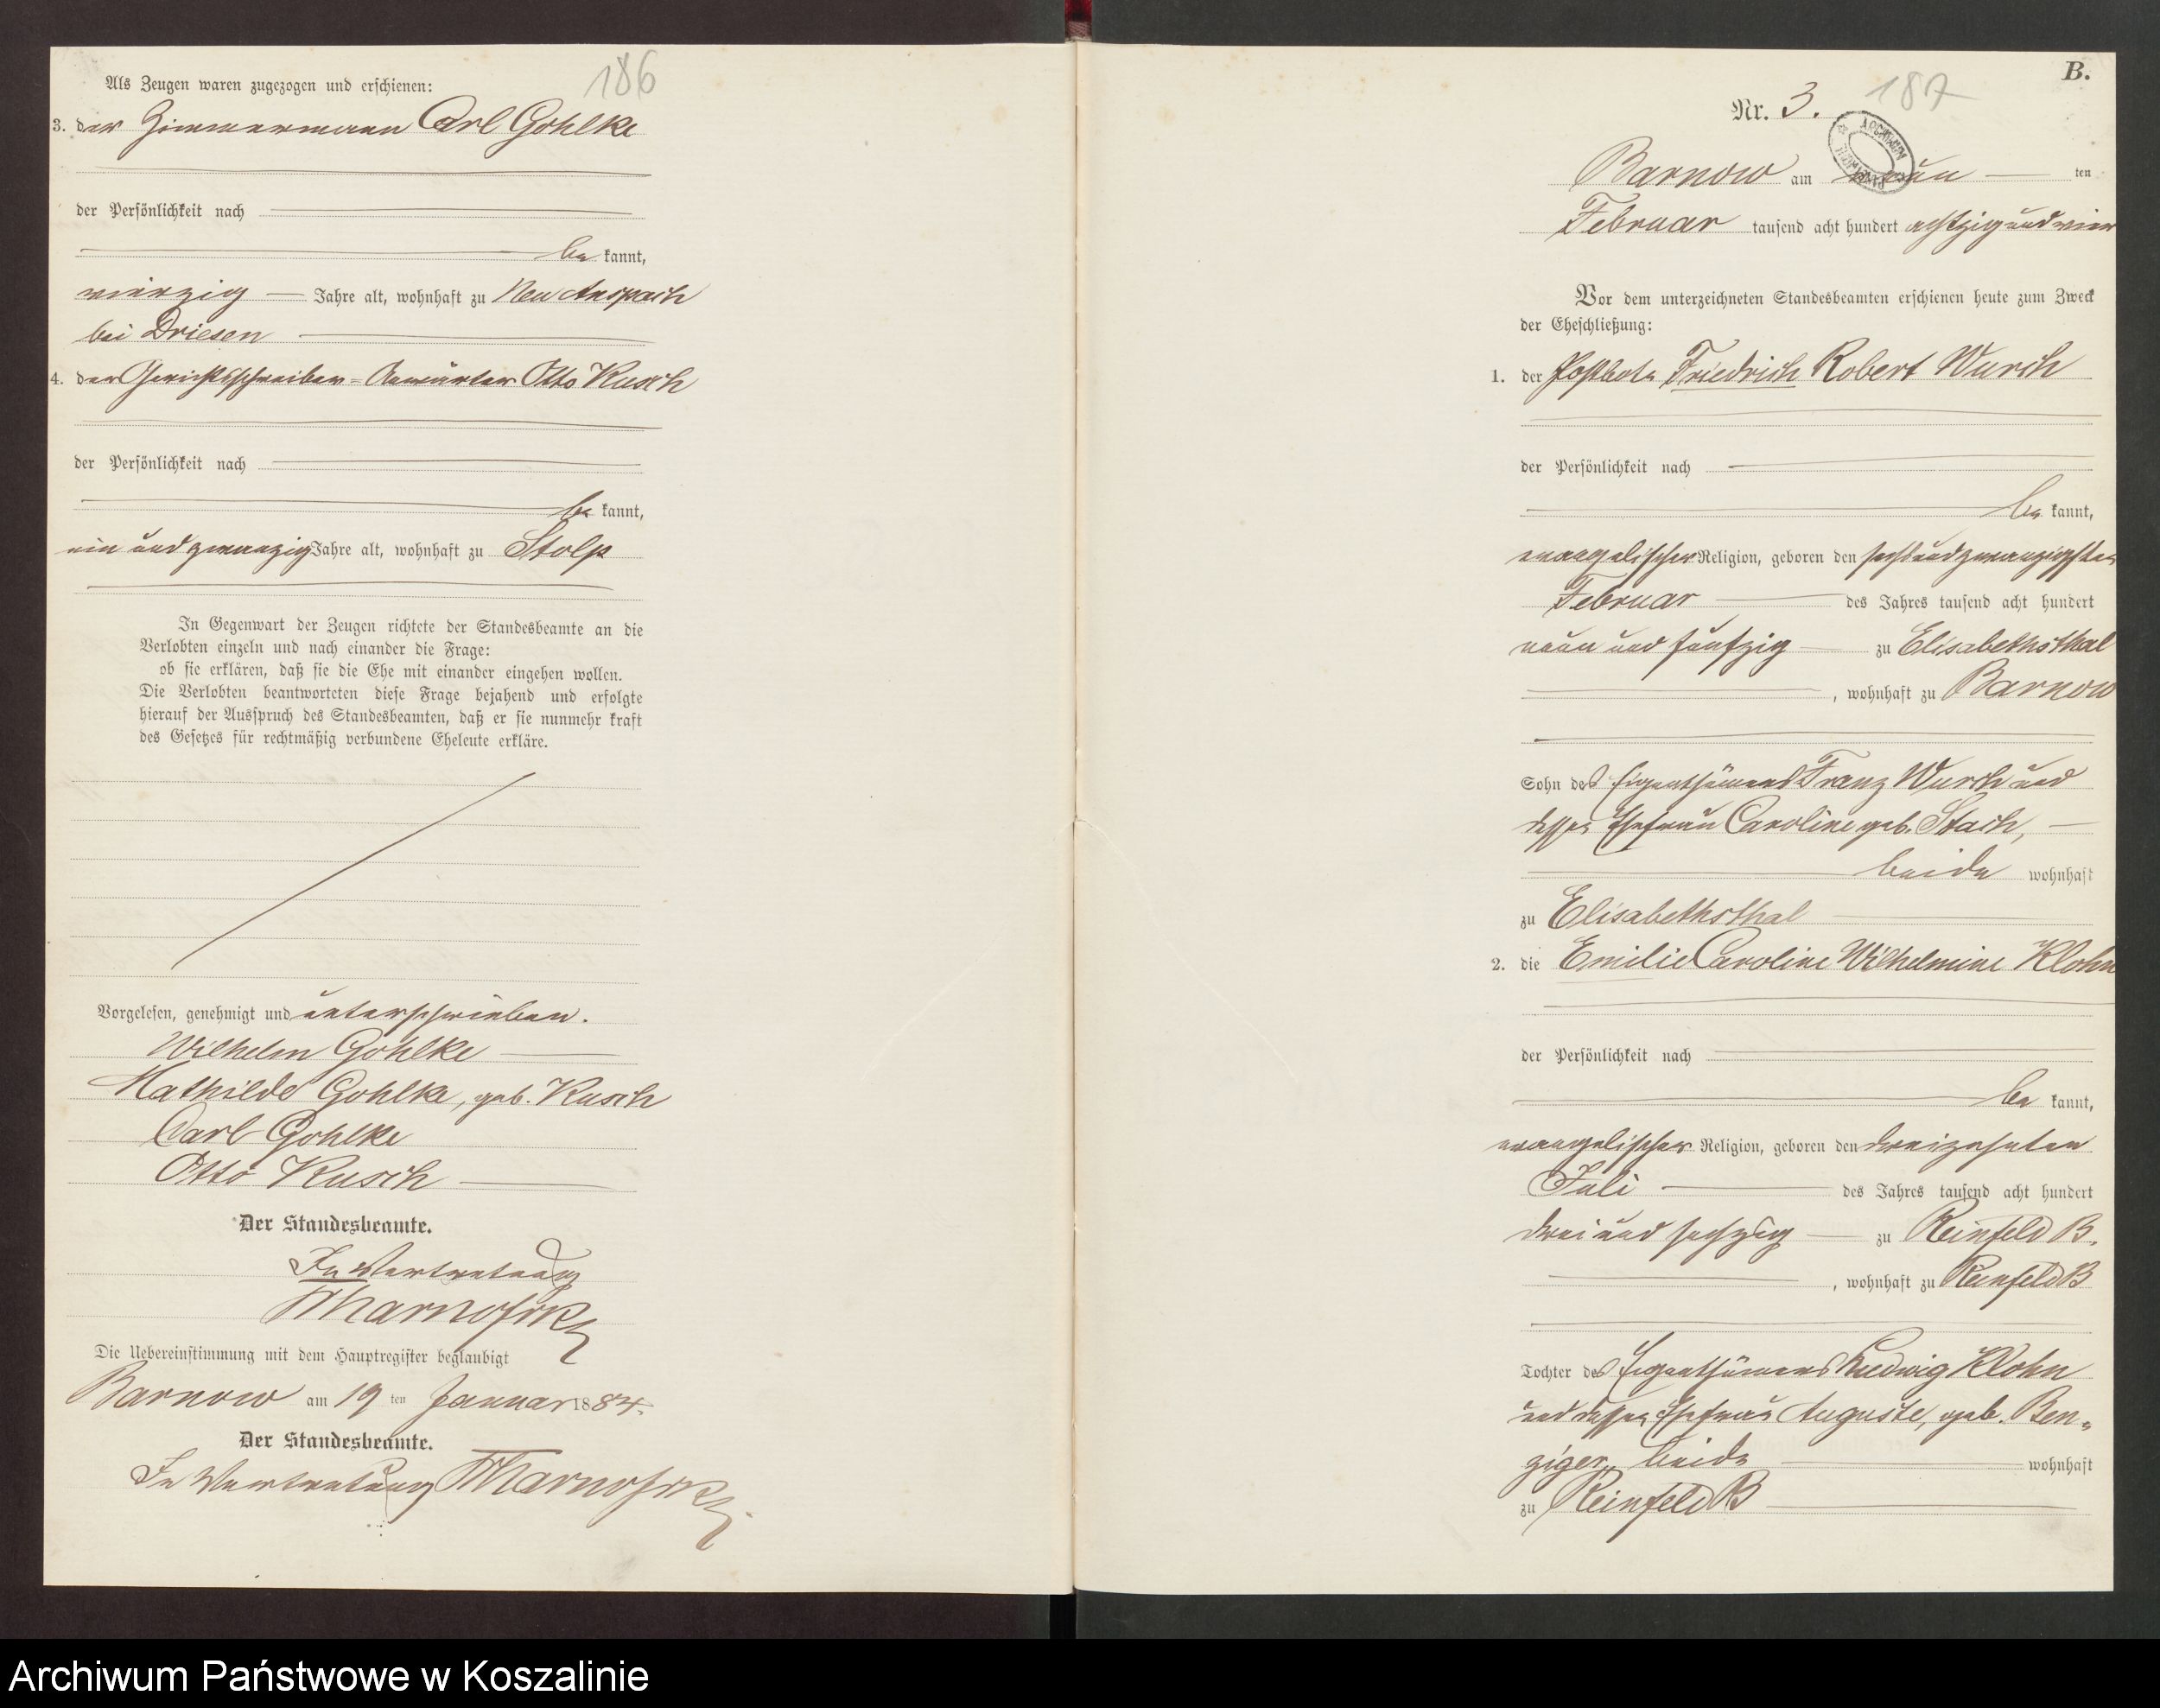 186
Als Zeugen waren zugezogen und erschienen:
3. der Zimmermann Carl Gohlke
der Persönlichkeit nach
be kannt,
vierzig Jahre alt, wohnhaft zu Neu Anspach
bei Driesen
4. der Gerichtsschreiber-Anwärter Otto Kusch
der Persönlichkeit nach
be kannt,
ein und zwanzig Jahre alt, wohnhaft zu Stolp
In Gegenwart der Zeugen richtete der Standesbeamte an die
Verlobten einzeln und nach einander die Frage:
ob sie erklären, daß sie die Ehe mit einander eingehen wollen.
Die Verlobten beantworteten diese Frage bejahend und erfolgte
hierauf der Ausspruch des Standesbeamten, daß er sie nunmehr kraft
des Gesetzes für rechtmäßig verbundene Eheleute erkläre.
Vorgelesen, genehmigt und unterschrieben.
Wilhelm Gohlke
Mathilde Gohlke, geb. Kusch
Carl Gohlke
Otto Kusch
Der Standesbeamte.
In Vertretung
Die Uebereinstimmung mit dem Hauptregister beglaubigt
Barnow am 19 ten Januar 1884.
Der Standesbeamte.
In Vertretung
B.
187
Nr. 3.
Barnow am neun ten
Februar tausend acht hundert achtzig und vier
Vor dem unterzeichneten Standesbeamten erschienen heute zum Zweck
der Eheschließung:
1. der Postbote Friedrich Robert Wursch
der Persönlichkeit nach
be kannt,
evangelischer Religion, geboren den sechsundzwanzigsten
Februar des Jahres tausend acht hundert
neun und fünfzig zu Elisabethsthal
, wohnhaft zu Barnow
Sohn des Eigenthümers Franz Wursch und
dessen Ehefrau Caroline geb. Stach,
beide wohnhaft
zu Elisabethsthal
2. die Emilie Caroline Wilhelmine Klohn
der Persönlichkeit nach
be kannt,
evangelischer Religion, geboren den dreizehnten
Juli des Jahres tausend acht hundert
drei und sechzig zu Reinfeld B.
, wohnhaft zu Reinfeld B
Tochter des Eigenthümers Ludwig Klohn
und dessen Ehefrau Auguste, geb. Ben=
ziger, beide wohnhaft
zu Reinfeld B
Archiwum Państwowe w Koszalinie